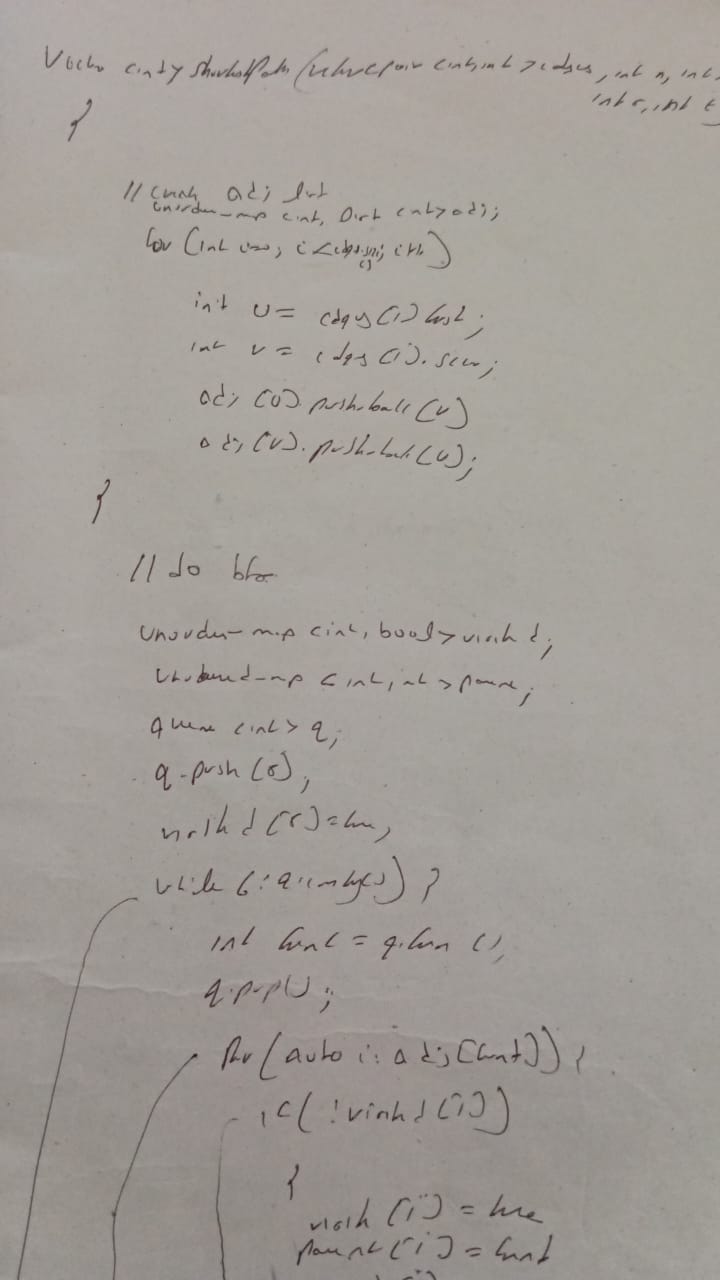 Vector <int> shortestPath (vector<pair <int,int>>edges, int n, int
int s, int t
{
// create adj list
unordered_map <int, list <int>> adj;
for (int i=0; i<edges.size(); i++)
int u = edges[i].first;
int v = edges[i].second;
adj[u].push_back(v)
adj[v].push_back(u);
}
// do bfs
unordered_map <int, bool> visited;
unordered_map <int, int> parent;
queue <int> q;
q.push(s);
visited[s]=true,
while (!q.empty()) {
int front = q.front();
q.pop();
for(auto i: adj[front]) {
if(!visited[i])
{
visited[i] = true
parent[i] = front